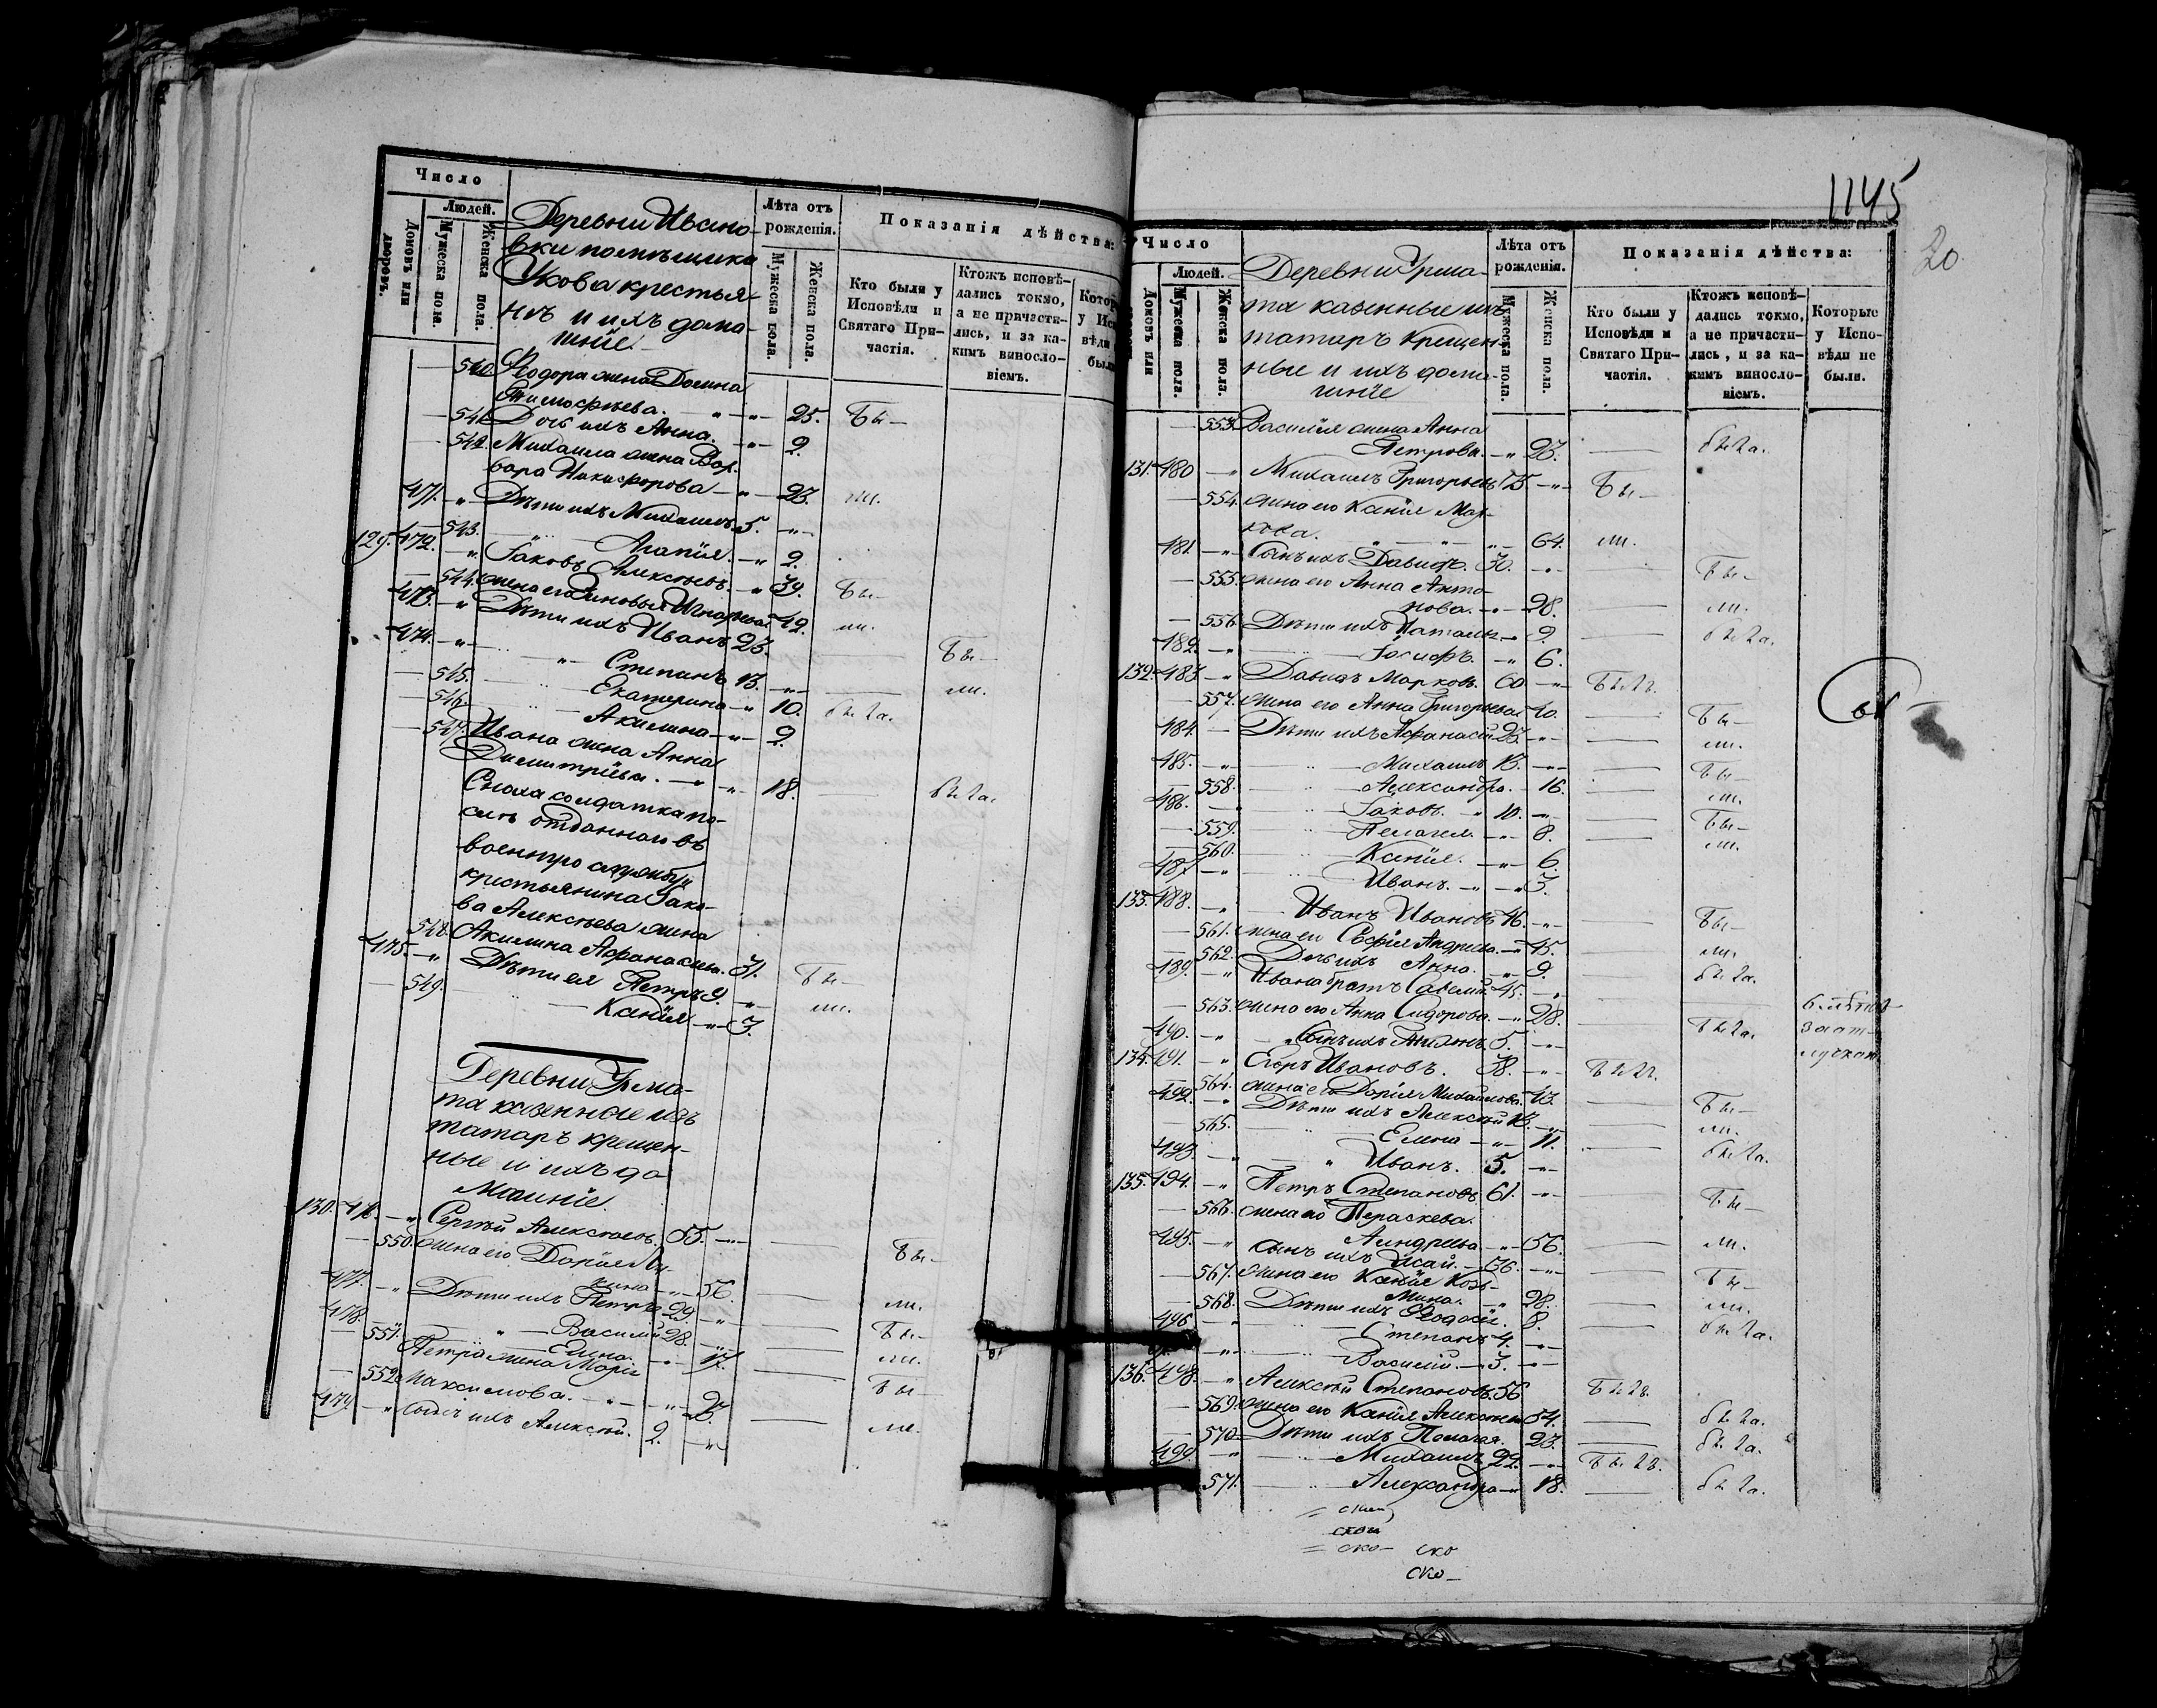 Число
Людей.
Домовъ или дворовъ.
Мужеска пола.
Женска пола.
Деревни Ивано-
вки помѣщика
Укова крестья-
нъ и ихъ дома-
шніе
Лѣта отъ рожденія.
Мужеска пола.
Женска пола.
Показанія дѣйства:
Кто были у Исповѣди и Святаго При-частія.
Ктожъ исповѣ-дались токмо, а не причасти-лись, и за ка-кимъ винослo-віемъ.
540. Ѳедора жена Домна
Тимоѳѣева. 25. Бы-
541. Дочь ихъ Анна. 2.
542. Михаила жена Вар-
вара Никифорова 23. ли.
471. Дѣти ихъ Михаилъ 5.
543. Агапія. 2.
129. 472. Іаковъ Алексѣевъ. 39. Бы-
544. жена его Зиновья Игнатьева 42. ли.
473. Дѣти ихъ Иванъ 23. Бы-
474. Степанъ 13. ли.
545. Екатерина 10. была.
546. Акилина 9.
547. Ивана жена Анна
Димитріева. 18. была
Сноха солдатка по-
слѣ отданнаго въ
военную службу
крестьянина Іако-
ва Алексѣева жена
548. Акилина Аѳанасьева. 31. Бы-
475. Дѣти ея Петръ 9. ли.
549. Ксенія 3.
Деревни Урма-
та казенные изъ
татаръ крещен-
ные и ихъ до
машніе.
130. 476. Сергѣй Алексѣевъ. 55. Бы-
550. жена его Дарія Лу-
кина 56. ли.
477. Дѣти ихъ Петръ 29. Бы-
478. Василій 28. ли.
551. Елена. 17. Бы-
Петра жена Марія
552. Максимова. 23. ли.
479. Сынъ ихъ Алексѣй. 2.
1145
20
Число
Людей.
Домовъ или
Мужеска пола.
Женска пола.
Деревни Урма-
та казенные изъ
татаръ крещен-
ные и ихъ дома-
шніе
Лѣта отъ рожденія.
Мужеска пола.
Женска пола.
Показанія дѣйства:
Кто были у Исповѣди и Святаго При-частія.
Ктожъ исповѣ-дались токмо, а не причасти-лись, и за ка-кимъ винослo-віемъ.
Которые у Испо-вѣди не были.
553. Василія жена Анна
Петрова. 23. была.
131. 480 Михаилъ Григорьевъ 75. Бы-
554. жена его Ксенія Мар-
кова. 64. ли.
481. Сынъ ихъ Давидъ. 30. Бы-
555. жена его Анна Анто-
нова. 28. ли.
556. Дѣти ихъ Наталья 9. была.
482. Іосифъ. 6.
132. 483 Давидъ Марковъ. 60. Былъ.
557. жена его Анна Григорьева 40. Бы-
484. Дѣти ихъ Аѳанасій 23. ли.
485. Михаилъ 13. Бы-
558. Александра. 16. ли.
486. Іаковъ. 10. Бы-
559. Пелагея. 8. ли.
560. Ксенія. 6.
487. Иванъ. 3.
133. 488. Иванъ Ивановъ 46. Бы-
561. жена его Софія Андреева 45. ли.
562. Дочь ихъ Анна. 9. была.
489. Ивана братъ Савелій 45.
563. жена его Анна Сидорова. 28. была.
490. Сынъ ихъ 5.
134. 491. Егоръ Ивановъ. 38. Былъ.
564. жена его Дарія Михайлова. 43. Бы-
492. Дѣти ихъ Алексѣй 13. ли.
565. Елена 11. была.
493. Иванъ. 5.
135. 494. Петръ Степановъ 61. Бы-
566. жена его Параскева.
Андреева 56. ли.
495. Сынъ ихъ Исай. 36. Бы-
567. жена его Ксенія Козь-
мина. 28. ли.
568. Дѣти ихъ Ѳеодосія. 8. была.
496. Степанъ 4.
Василій. 3.
136. 498. Алексѣй Степановъ. 56. Былъ.
569. жена его Ксенія Алексѣева 54. была.
570. Дѣти ихъ Пелагея. 23. была.
499. Михаилъ 22. Былъ.
571. Александра 18. была.
ско
ско
ско